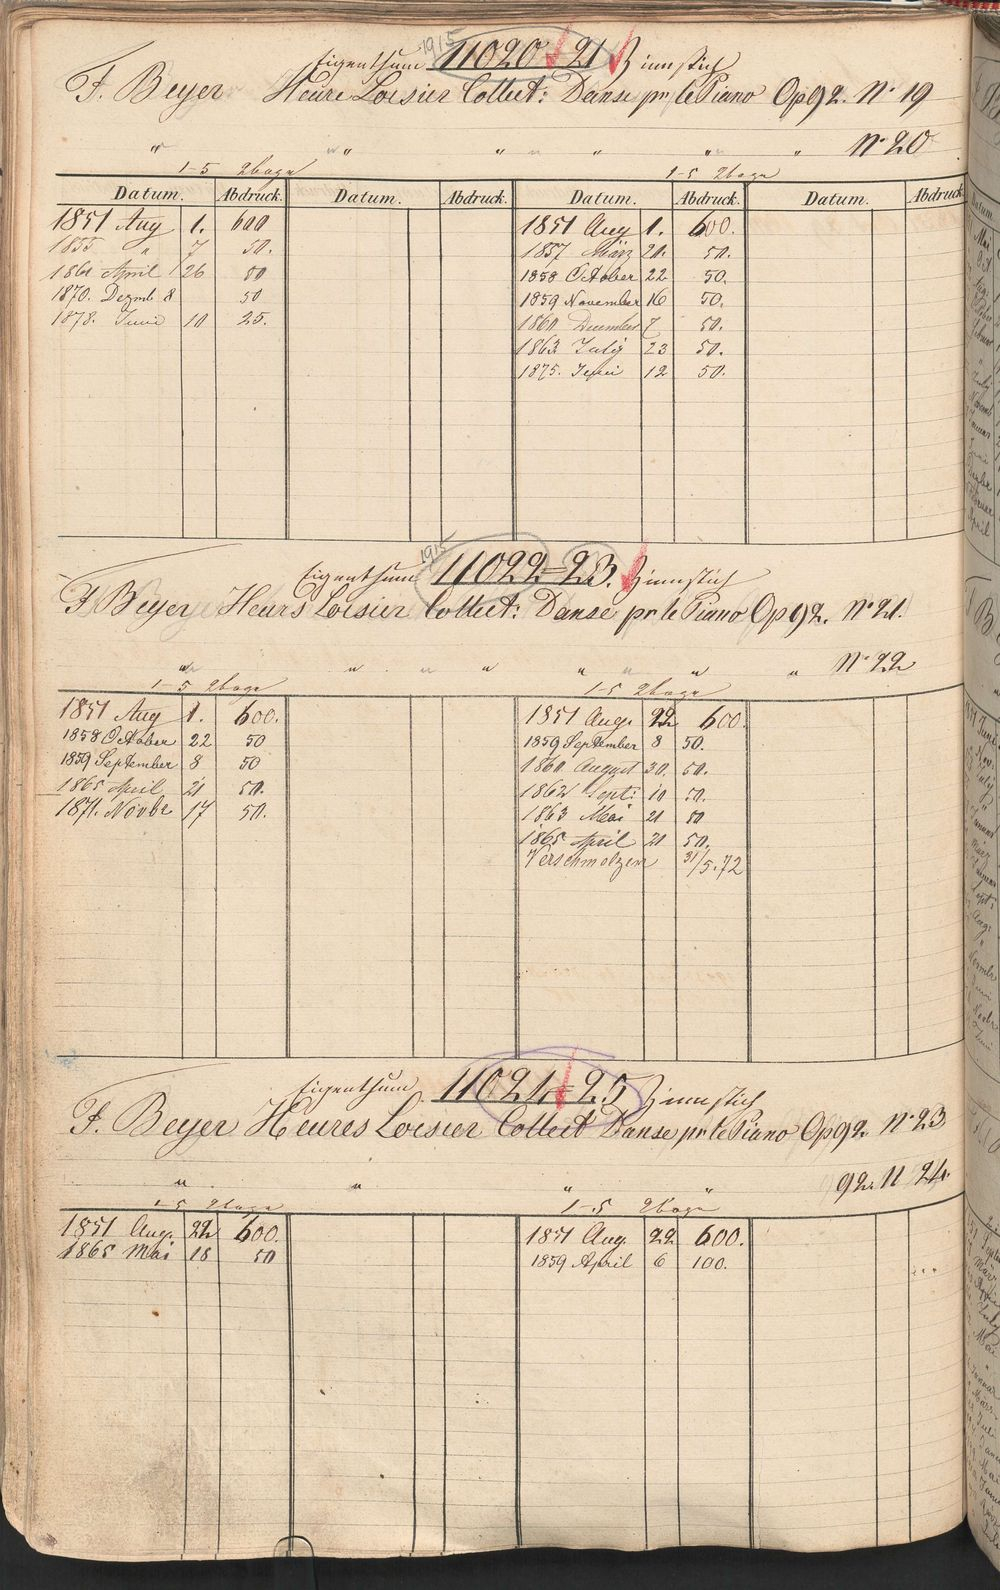 1915
Eigenthum 11020 = 21 Zinnstich
F. Beyer Heure Loisier Collect: Danse pr le Piano Op 92. No 19
" " " " " " " No 20
1-5 2 boge 1-5 2 boge
Datum. Abdruck. Datum. Abdruck. Datum. Abdruck. Datum. Abdruck.
1851 Aug 1. 600 1851 Aug 1. 600.
1855 " 7 50. 1857 März 20. 50.
1861 April 26 50 1858 October 22 50.
1870. Dezmb 8 50 1859 November 16 50.
1878. Juni 10 25. 1860 December 7 50.
1863 July 23 50.
1875. Juni 12 50.
1915
Eigenthum 11022 = 23. Zinnstich
F Beyer Heurs Loisier Collect: Danse pr le Piano Op 92. No 21.
" " " " " " " " No 22
1-5 2 boge 1-5 2 boge
1851 Aug 1. 600. 1851 Aug. 22 600.
1858 October 22 50 1859 September 8 50.
1859 September 8 50 1860 August 30. 50.
1865 April 21 50. 1862 Sept: 10 50.
1871. Novbr 17 50. 1863 Mai 21 50
1865 April 21 50.
Verschmolzen 31/5.72
Eigenthum 11024 = 25 Zinnstich
F. Beyer Heures Loisier Collect Danse pr le Piano Op 92 No 23
" " " " 92. N 24.
1-5 2 boge 1-5 2 boge
1851 Aug. 22 600. 1851 Aug. 22 600.
1865 Mai 18 50 1859 April 6 100.